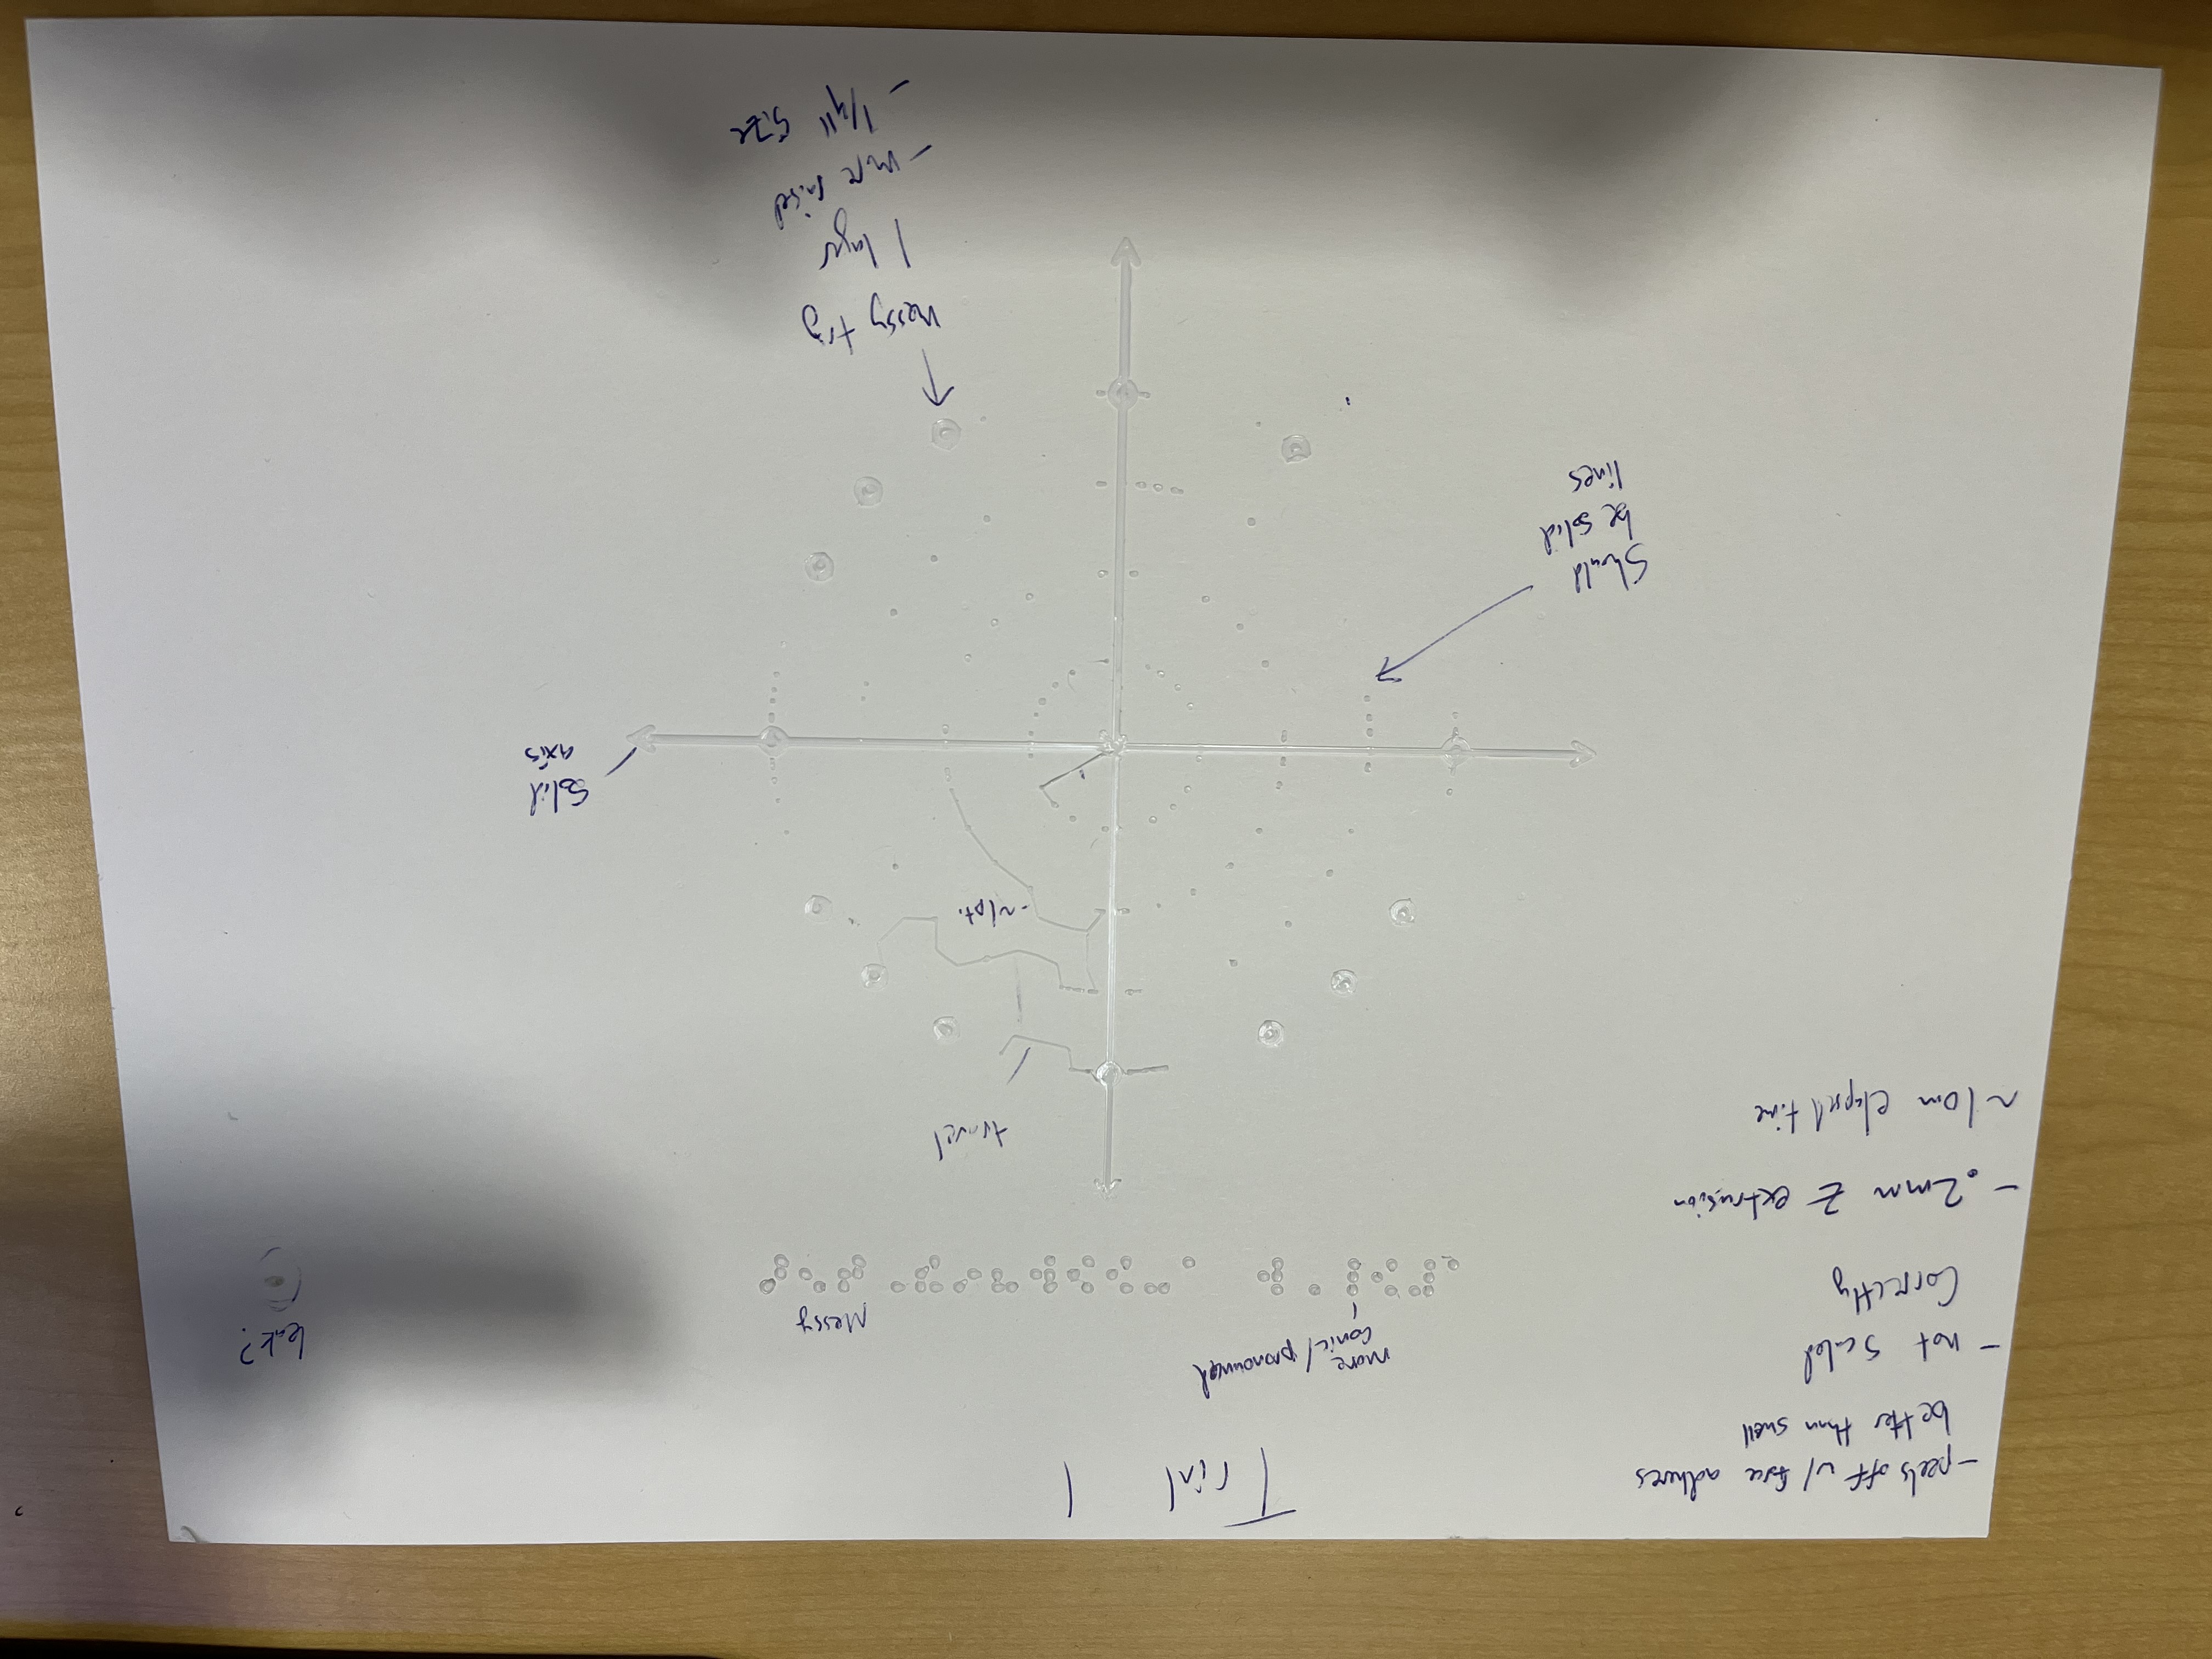 Trial 1
- peels off w/ force adheres
better than swell
- not scaled
Correctly
- .2mm Z extrusion
~10m elapsed time
more
conic/pronounced
Messy
leak?
travel
-~1pt.
Solid
axis
Should
be solid
lines
messy try
1 layer
- more raised
- 1/4" size